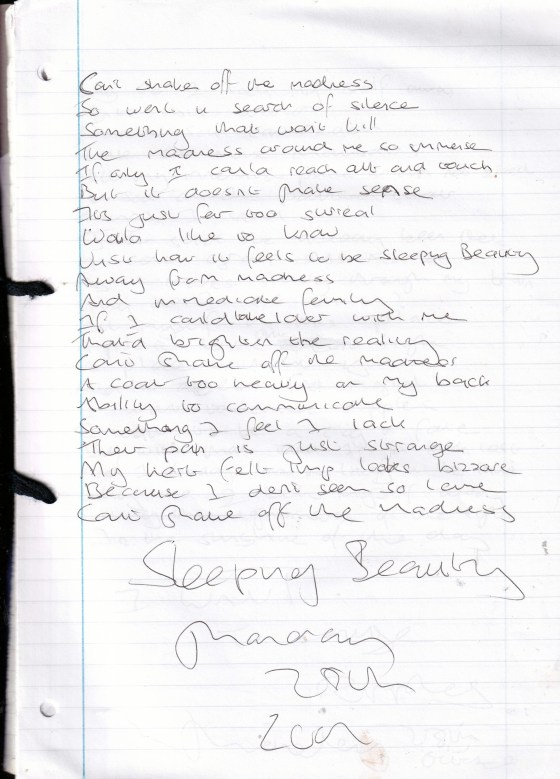 Can't shake off the madness
So went in search of silence
Something that wont kill
The madness around me so immense
If only I could reach out and touch.
But it doesnt make sense
Its just far too surreal
Would like to know
Just how it feels to be sleeping Beauty
Away from madness
And immediate family
If I could with me
That'd brighten the reality
Can't shake off the madness
A coat too heavy on my back
Ability to communicate
Something I feel I lack
Their pain is just strange
My heart felt limp looks bizzare
Because I dont seem so lame
Can't shake off the madness
Sleeping Beauty